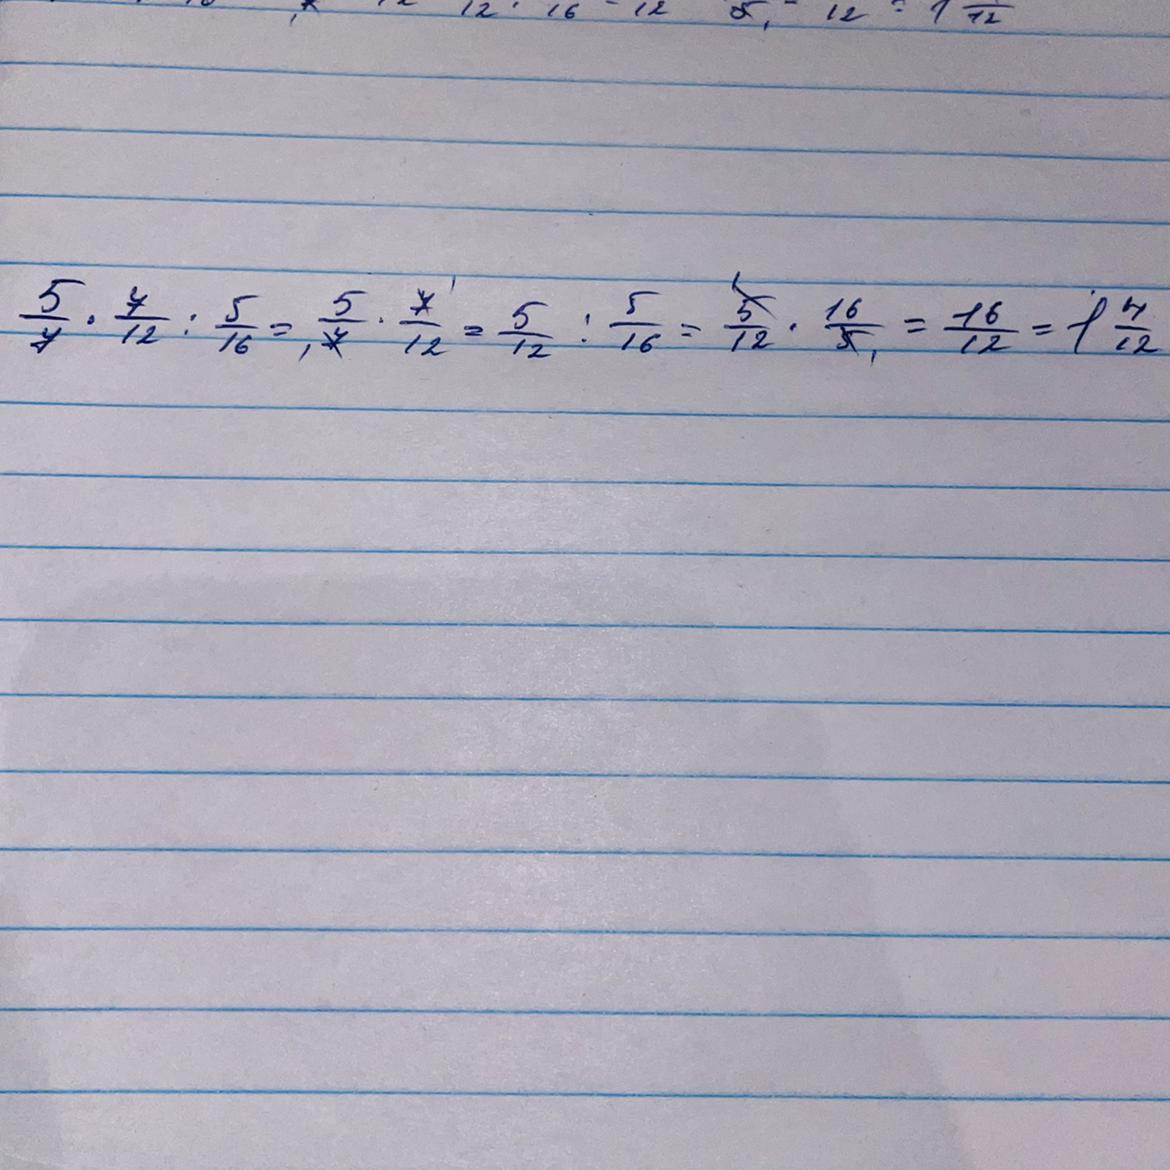 12 : 16 = 12 5, = 12 = 1 12
5/7 · 7/12 : 5/16 = 5/7 · 7/12 = 5/12 : 5/16 = 5/12 · 16/5 = 16/12 = 1 4/12